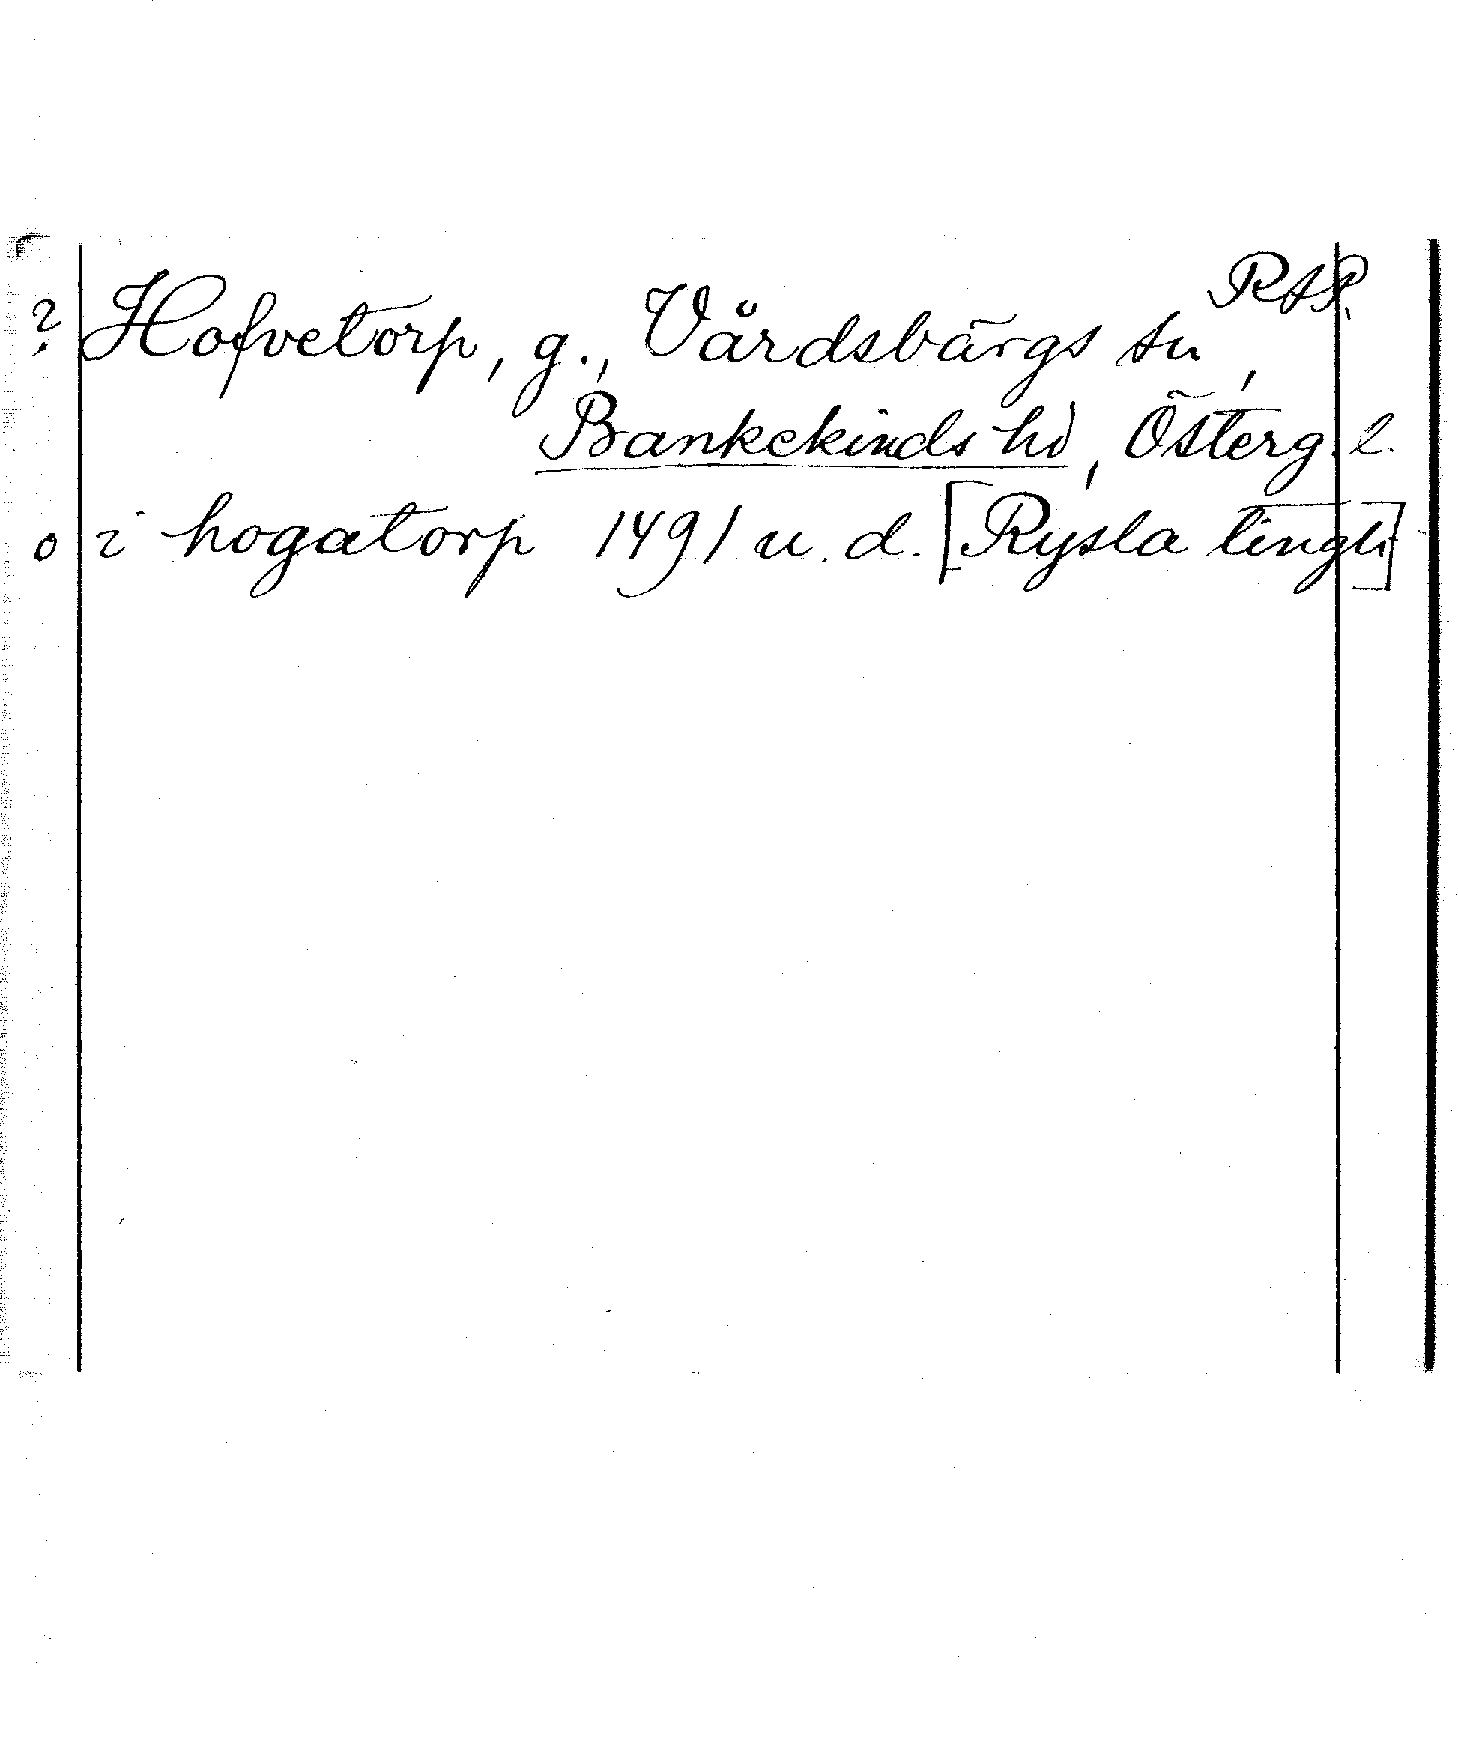 RAP.
? Hofvetorp, g., Vårdsbärgs sn,
Bankekinds hd, Österg. l.
o i hogatorp 1491 u. d. [Rysla tingli]